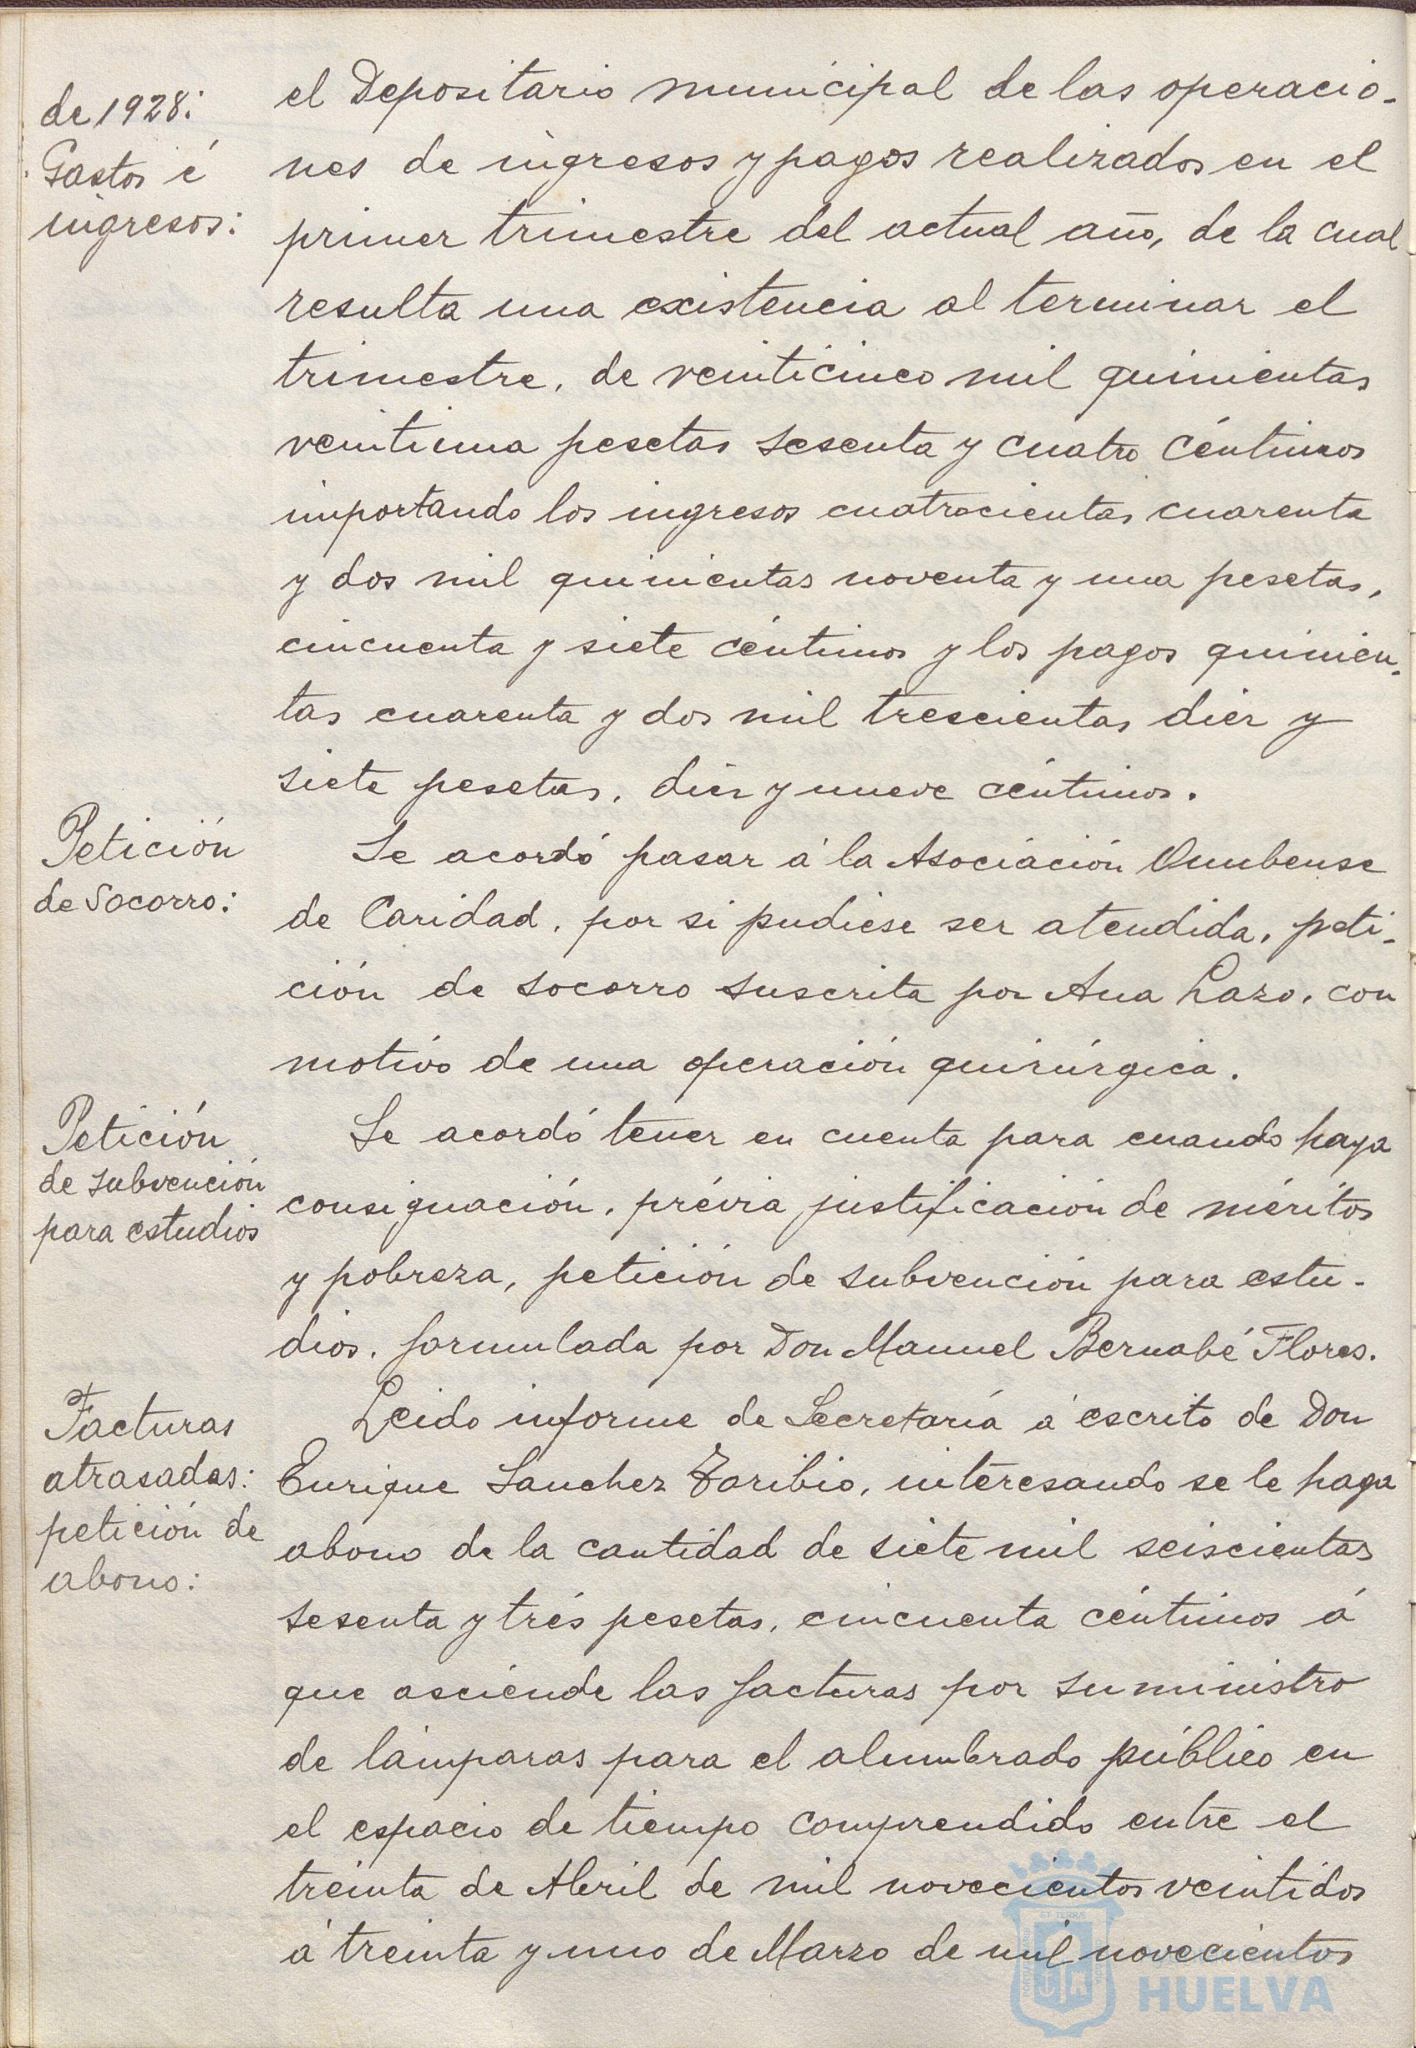 de 1928:
Gastos é
ingresos:
el Depositario municipal de las operacio-
nes de ingresos y pagos realizados en el
primer trimestre del actual año, de la cual
resulta una existencia al terminar el
trimestre, de veinticinco mil quinientas
veintiuna pesetas sesenta y cuatro céntimos
importando los ingresos cuatrocientas cuarenta
y dos mil quinientas noventa y una pesetas,
cincuenta y siete céntimos y los pagos quinien-
tas cuarenta y dos mil trescientas diez y
siete pesetas, diez y nueve céntimos.
Petición
de socorro:
Se acordó pasar á la Asociación Onubense
de Caridad, por si pudiese ser atendida, peti-
ción de socorro suscrita por Ana Lazo, con
motivo de una operación quirúrgica.
Petición
de subvención
para estudios
Se acordó tener en cuenta para cuando haya
consignación, prévia justificación de méritos
y pobreza, petición de subvención para estu-
dios, formulada por Don Manuel Bernabé Flores.
Facturas
atrasadas:
petición de
abono:
Leido informe de Secretaría á escrito de Don
Enrique Sanchez Toribio, interesando se le haga
abono de la cantidad de siete mil seiscientas
sesenta y trés pesetas, cincuenta céntimos á
que asciende las facturas por suministro
de lámparas para el alumbrado público en
el espacio de tiempo comprendido entre el
treinta de Abril de mil novecientos veintidos
á treinta y uno de Marzo de mil novecientos
HUELVA